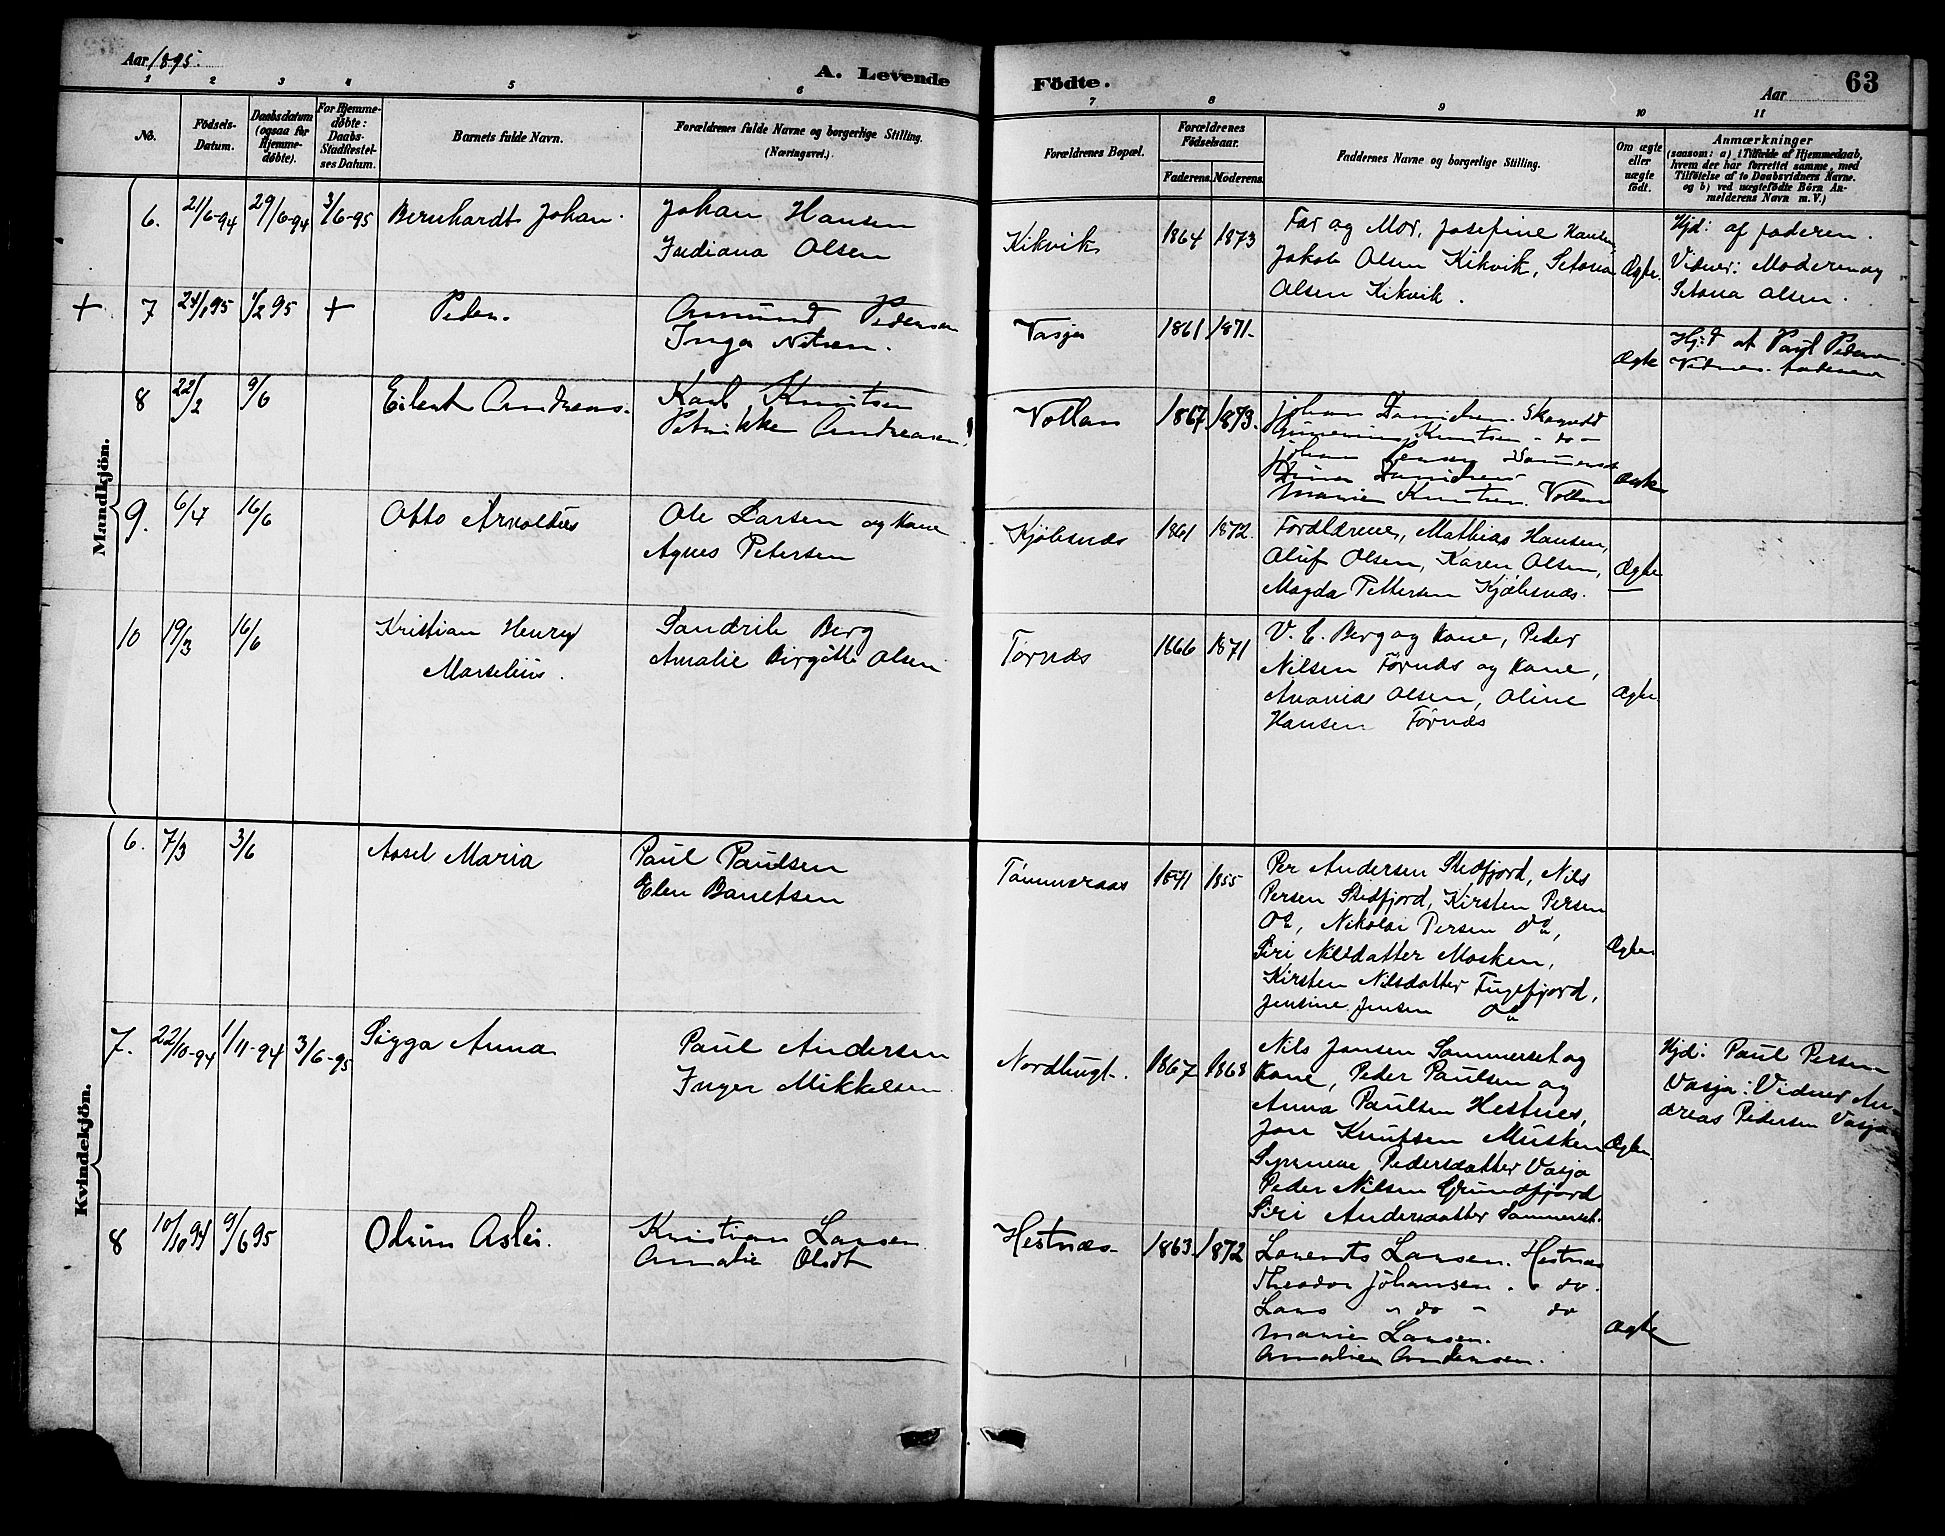 Aar 1895.
A. Levende
Födte.
Aar
63
1 2 3 4 5 6 7 8 9 10 11
No.
Födsels-Datum.
Daabsdatum (ogsaa for Hjemmedøbte).
For Hjemmedøbte: Daabs-Stadfæstelses Datum.
Barnets fulde Navn.
Forældrenes fulde Navne og borgerlige Stilling.
(Næringsvei.)
Forældrenes Bopæl.
Forældrenes Födselsaar.
Faderens. Moderens.
Faddernes Navne og borgerlige Stilling.
Om ægte eller uægte født.
Anmærkninger
(saasom: a) i Tilfælde af Hjemmedaab, hvem der har forrettet samme, med Tilföielse af to Daabsvidners Navne. og b) ved uægtefödte Börn Anmelderens Navn m.V.)
Mandkjön.
6. 21/6-94 29/6-94 3/6-95 Bernhardt Johan.
Johan Hansen
Indiana Olsen
Kikvik 1864 1873
Far og Mor, Josefine Hansen,
Jakob Olsen Kikvik, Setona
Olsen Kikvik.
Ægte.
Hjd: af faderen.
Vidner: Moderen og
Setona Olsen.
+ 7 24/1 95 1/2 95 + Peder.
Amund Pedersen
Inga Nilsen.
Vasja 1861 1871.
Ægte
Hj:d af Paul Pedersen
8 22/2 9/6 Eilert Andreas.
Karl Knutsen
Petrikke Andreasen.
Vollan 1867. 1873.
Knutsen - do -
Johan
Marie Knutsen. Vollan
Ægte
9. 6/4 16/6 Otto Arnoldus
Ole Larsen og Kone
Agnes Petersen
Kjölsnæs 1861 1872.
Forældrene, Mathias Hansen,
Oluf Olsen, Karen Olsen,
Magda Pettersen Kjölsnæs.
Ægte
10 19/3 16/6 Kristian Henry
Marselius.
Sandrik Berg
Amalie Birgitte Olsen
Tørnæs 1866 1871
V. E. Berg og Kone, Peder
Nilsen Tørnæs og Kone,
Ananias Olsen, Oline
Hansen Tørnæs
Ægte.
Kvindekjön.
6. 7/3 3/6 Assel Maria
Paul Paulsen
Elen Banetsen
Tømmeraas 1841 1855
Per Andersen Stedfjord, Nils
Persen Stedfjord, Kirsten Persen
Do, Nikolai Persen do,
Siri Nilsdatter Mosken,
Kirsten Nilsdatter Fuglfjord,
Jensine Jensen do
Ægte
7. 22/10-94 1/11-94 3/6-95 Sigga Anna
Paul Andersen
Inger Mikkelsen
Nordbugt. 1867 1868
Nils Jansen Sommerset og
Kone, Peder Paulsen og
Anna Paulsen Hestnes,
Jon Knutsen Musken
Pedersdatter Vasja
Peder Nilsen Grundfjord
Siri Andersdatter Sommerset.
Ægte
Hjd: Paul Persen
Vasja: Vidner An-
dreas Pedersen Vasja
8 10/10 94 9/6 95
Kristian Larsen
Amalie Olsdt
Hestnæs. 1863. 1872
Lorents Larsen. Hestnæs
Theodor Johansen. do.
Lars " do - do
Marie Larsen.
Andersen.
Ægte